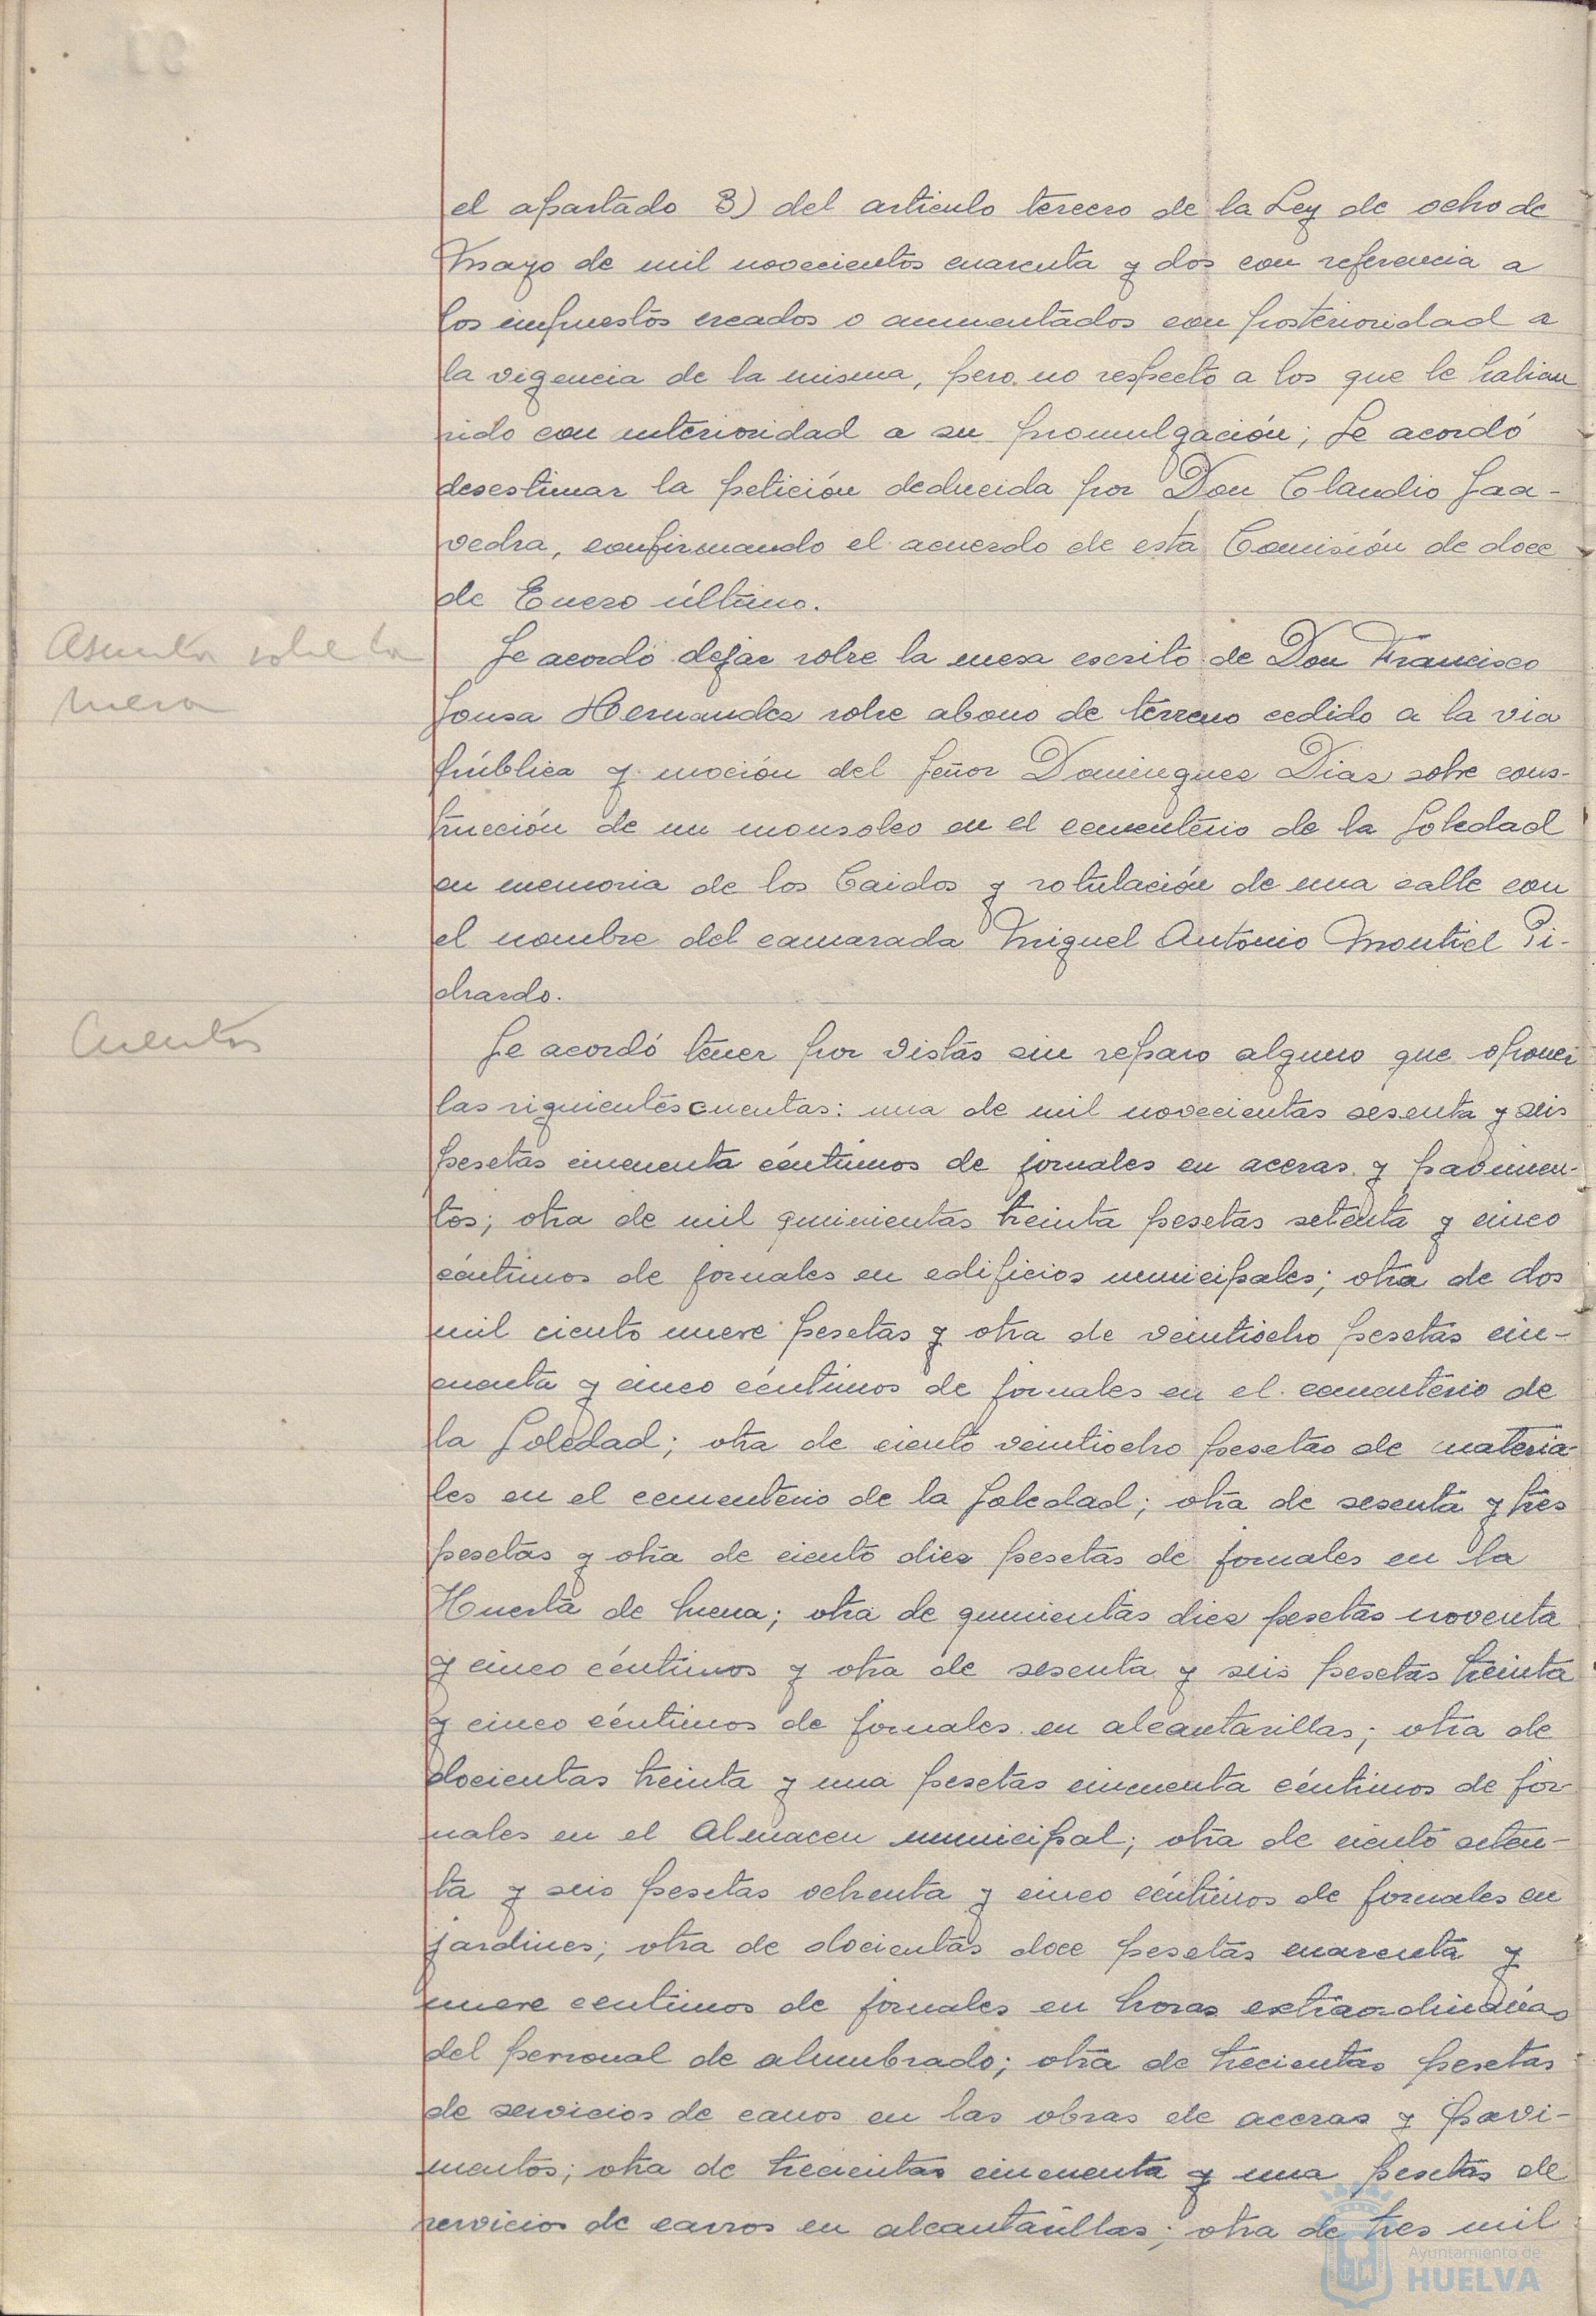 el apartado B) del articulo tercero de la Ley de ocho de
Mayo de mil novecientos cuarenta y dos con referencia a
los impuestos creados o aumentados con posterioridad a
la vigencia de la misma, pero no respecto a los que le habian
sido con anterioridad a su promulgación; Se acordó
desestimar la petición deducida por Don Claudio Saa-
vedra, confirmando el acuerdo de esta Comisión de doce
de Enero último.
Asuntos sobre la
mesa
Se acordó dejar sobre la mesa escrito de Don Francisco
Sousa Hernandez sobre abono de terreno cedido a la via
pública y moción del Señor Dominguez Diaz sobre cons-
trucción de un mousoleo en el cementerio de la Soledad
en memoria de los Caidos y rotulación de una calle con
el nombre del camarada Miguel Antonio Montiel Pi-
chardo.
Cuentas
Se acordó tener por vistas sin reparo alguno que oponer
las siguientes cuentas: una de mil novecientas sesenta y seis
pesetas cincuenta céntimos de jornales en aceras y pavimen-
tos; otra de mil quinientas treinta pesetas setenta y cinco
céntimos de jornales en edificios municipales; otra de dos
mil ciento nueve pesetas y otra de veintiocho pesetas cin-
cuenta y cinco céntimos de jornales en el cementerio de
la Soledad; otra de ciento veintiocho pesetas de materia-
les en el cementerio de la Soledad; otra de sesenta y tres
pesetas y otra de ciento diez pesetas de jornales en la
Huerta de Mena; otra de quinientas diez pesetas noventa
y cinco céntimos y otra de sesenta y seis pesetas treinta
y cinco céntimos de jornales en alcantarillas; otra de
docientas treinta y una pesetas cincuenta céntimos de jor-
nales en el Almacen municipal; otra de ciento seten-
ta y seis pesetas ochenta y cinco céntimos de jornales en
jardines; otra de docientas doce pesetas cuarenta y
nueve centimos de jornales en horas extraordinarias
del personal de alumbrado; otra de trecientas pesetas
de servicios de carros en las obras de aceras y pavi-
mentos; otra de trecientas cincuenta y una pesetas de
servicios de carros en alcantarillas; otra de tres mil
Ayuntamiento de
HUELVA